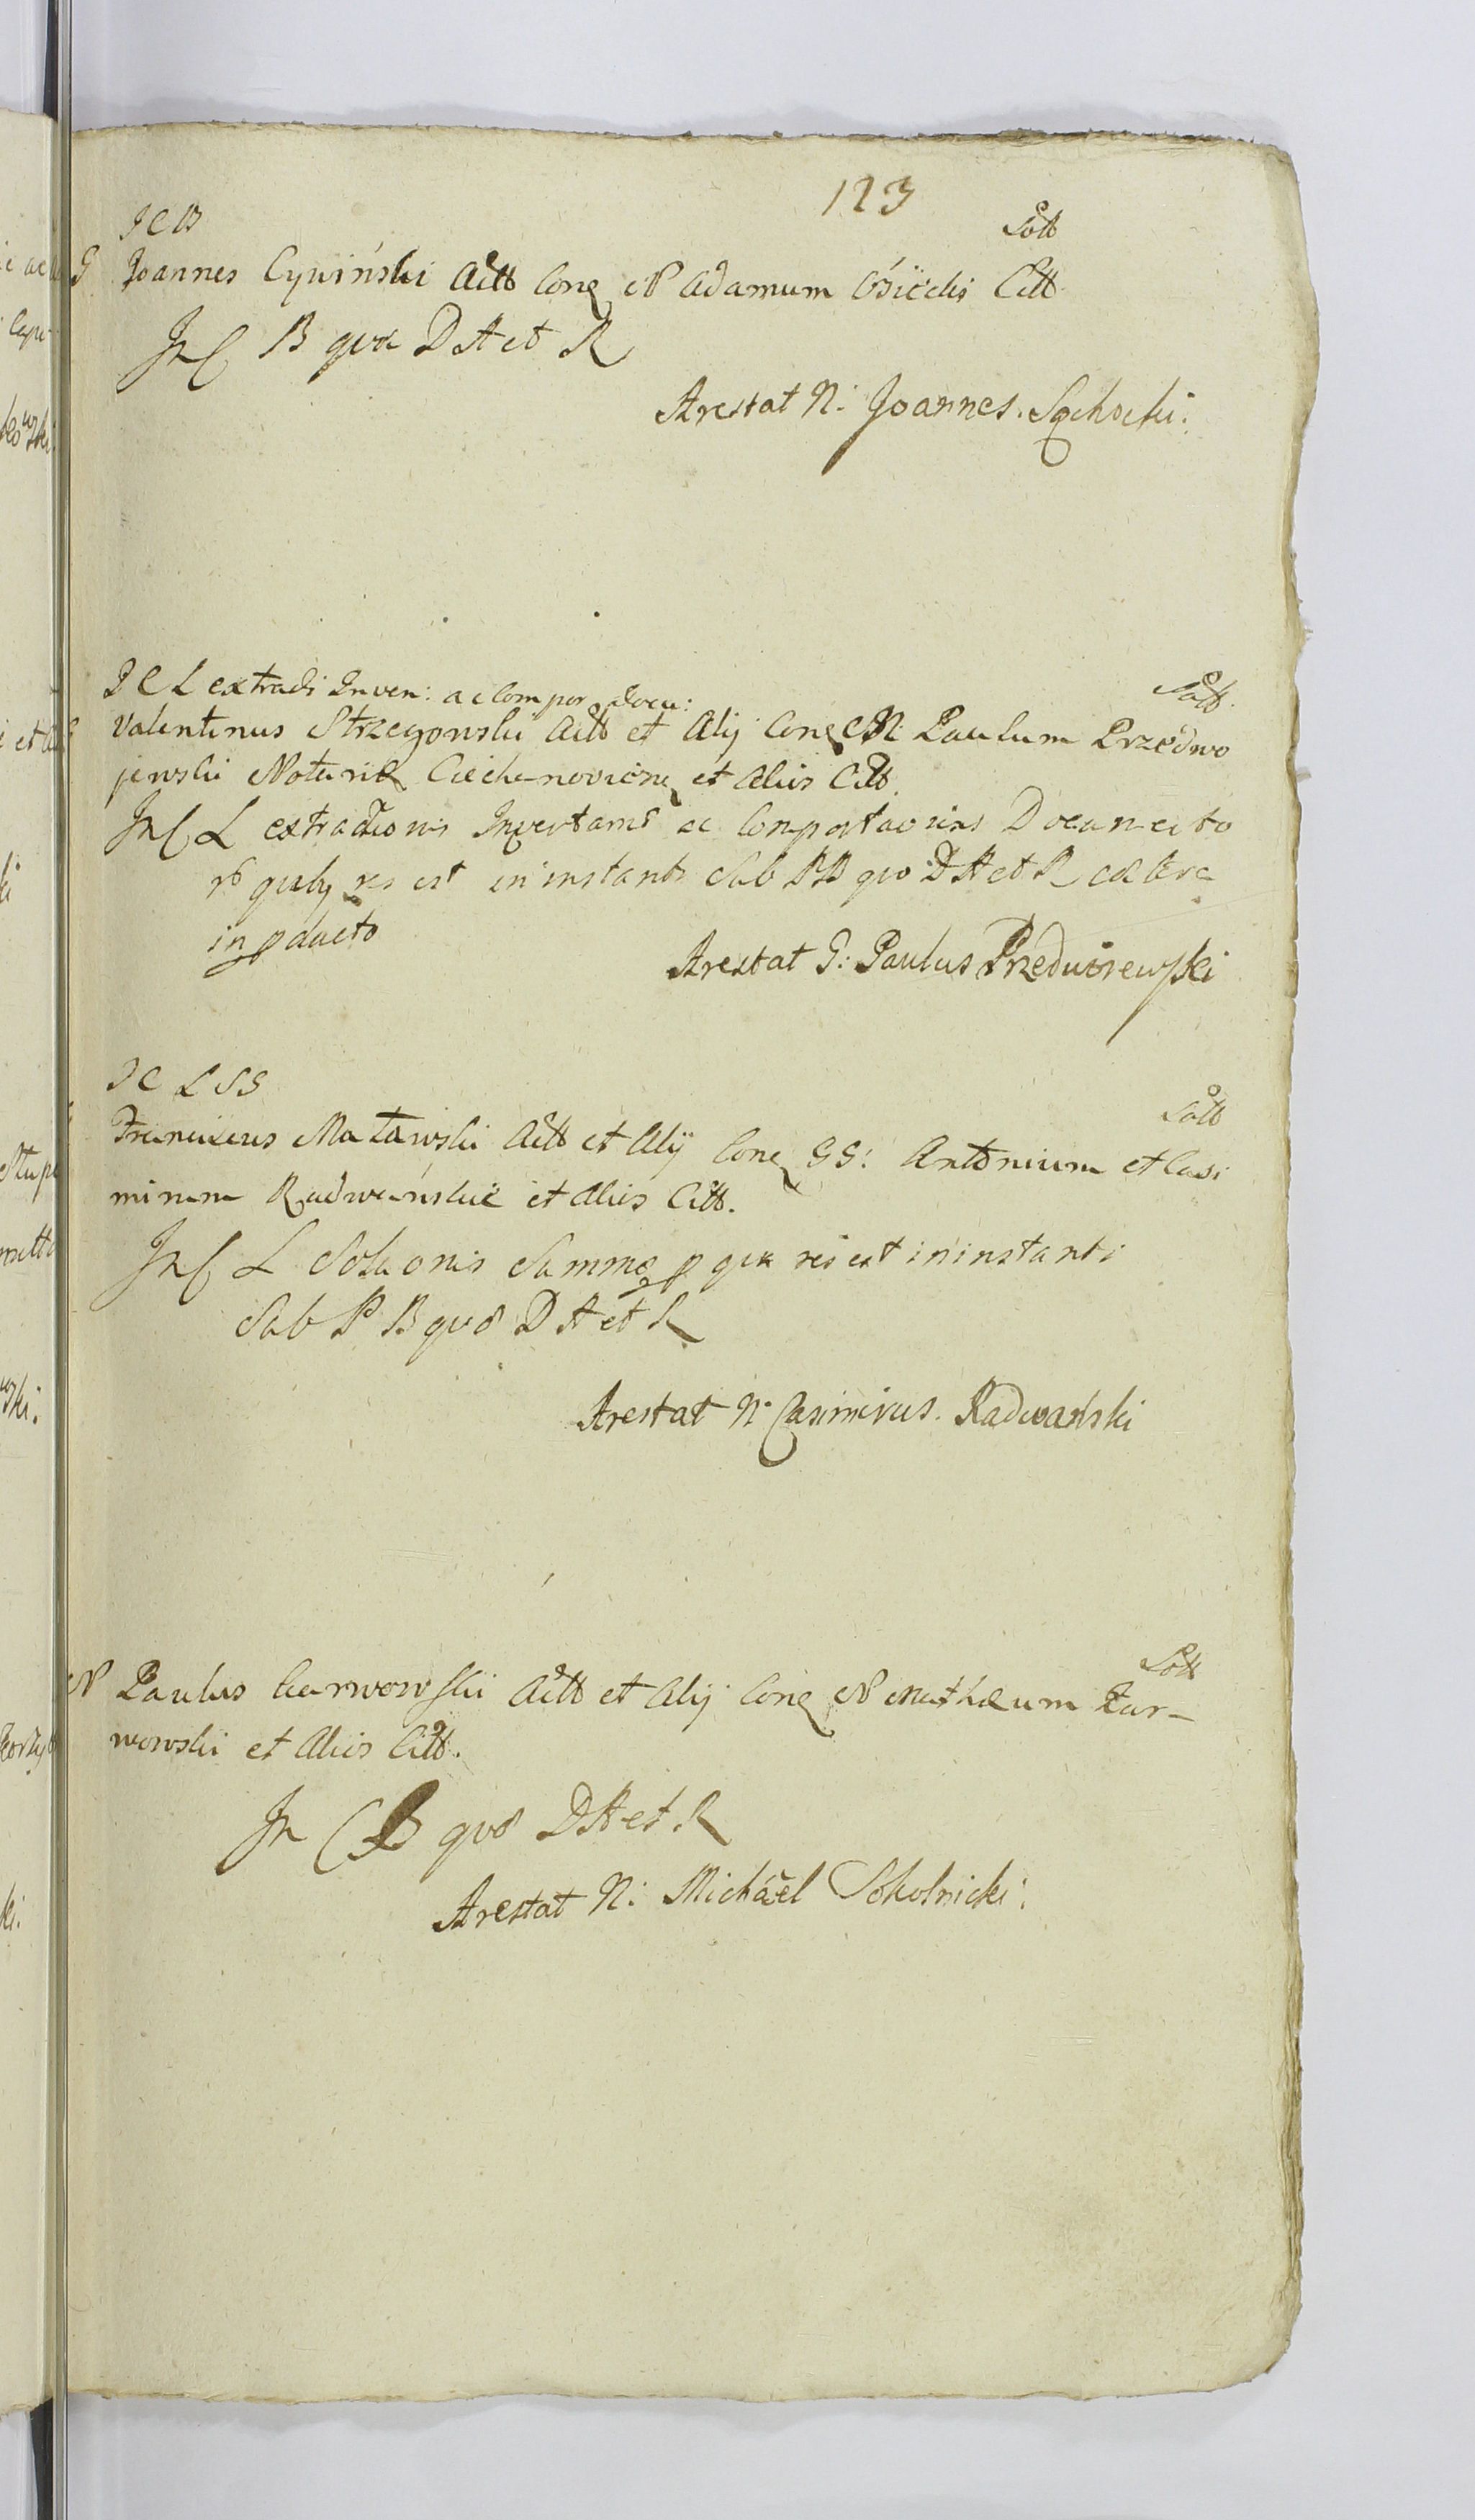 123
J C B
Sott
G Joannes Cywiński Actt Conq N Adamum Citt
In C B quo D A et R
Arestat N: Joannes Sochocki.
J C L extradi Inven: ac Compor Docu:
Sott.
Valentinus Strzegowski Actt et Alij Conq N: Paulum Przedwo
jewski Notariū Ciechanovien et Alios Citt.
In C L extraditionis Inventarii ac Comportaonis Documento
rū res est in instanti Sub P B quo D A et R cætera
in pducto
Arestat G: Paulus Przedwoiewski
J C L S S
Sott
Franciscus Matawski Actt et Alij Conq GG: Antonium et Casi
mirum Radwańskie et Alios Citt.
In C L Solutionis Summæ p qua res est in instanti
Sub P B quo D A et R
Arestat N: Casimirus Radwański
Sott
N Paulus Karwowski Actt et Alij Conq N Mathæum Kar-
wowski et Alios Citt.
In C B quo D A et R
Arestat N: Michael Sokolnicki.